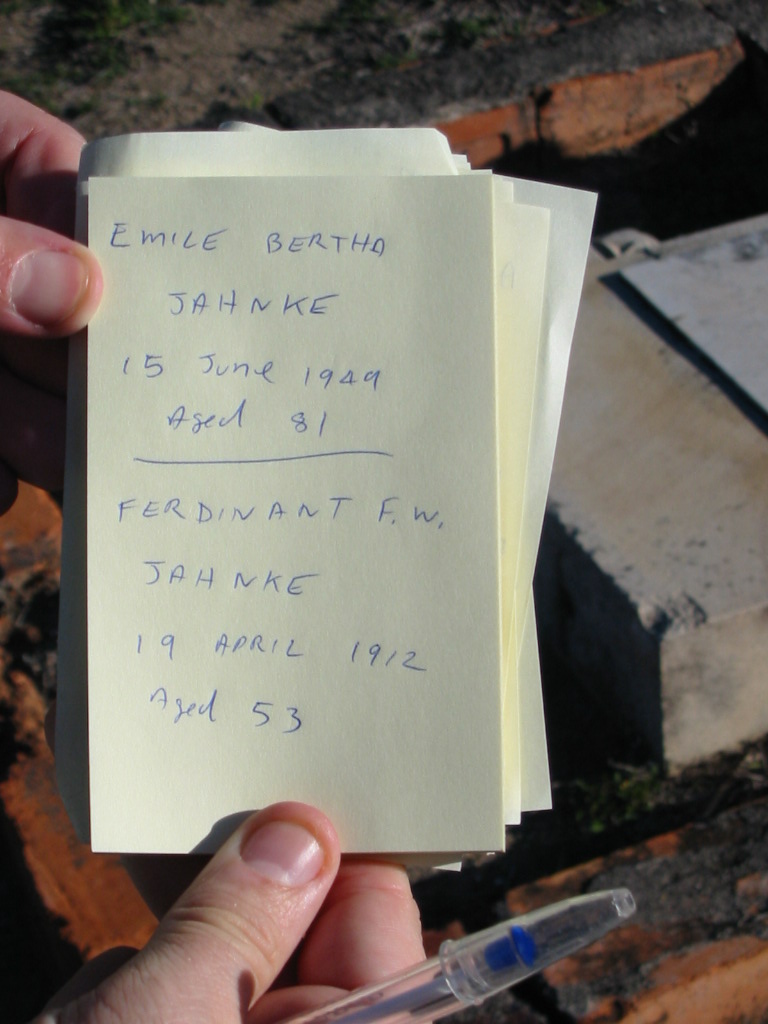 EMILE BERTHA
JAHNKE
15 June 1949
Aged 81
FERDINANT F. W.
JAHNKE
19 APRIL 1912
Aged 53